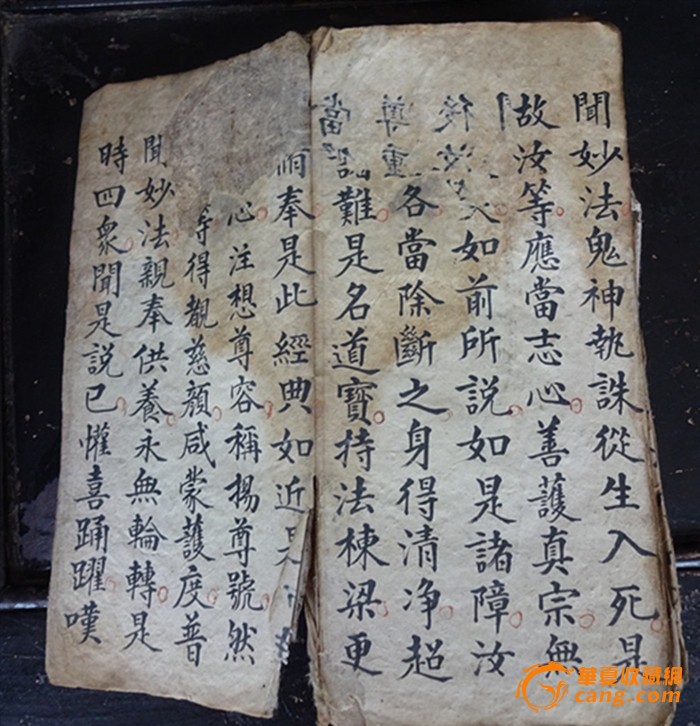 聞妙法鬼神執誅從生入死是
故汝等應當志心善護真宗無
如前所說如是諸障汝
後汝各當除斷之身得清净超
尊重
當知難是名道寳持法棟梁更
奉是此經典如近是
心注想尊容稱揚尊號然
等得覩慈顔咸蒙護度普
聞妙法親奉供養永無輪轉是
時四衆聞是說已懽喜踊躍嘆
華夏收藏網
cang.com